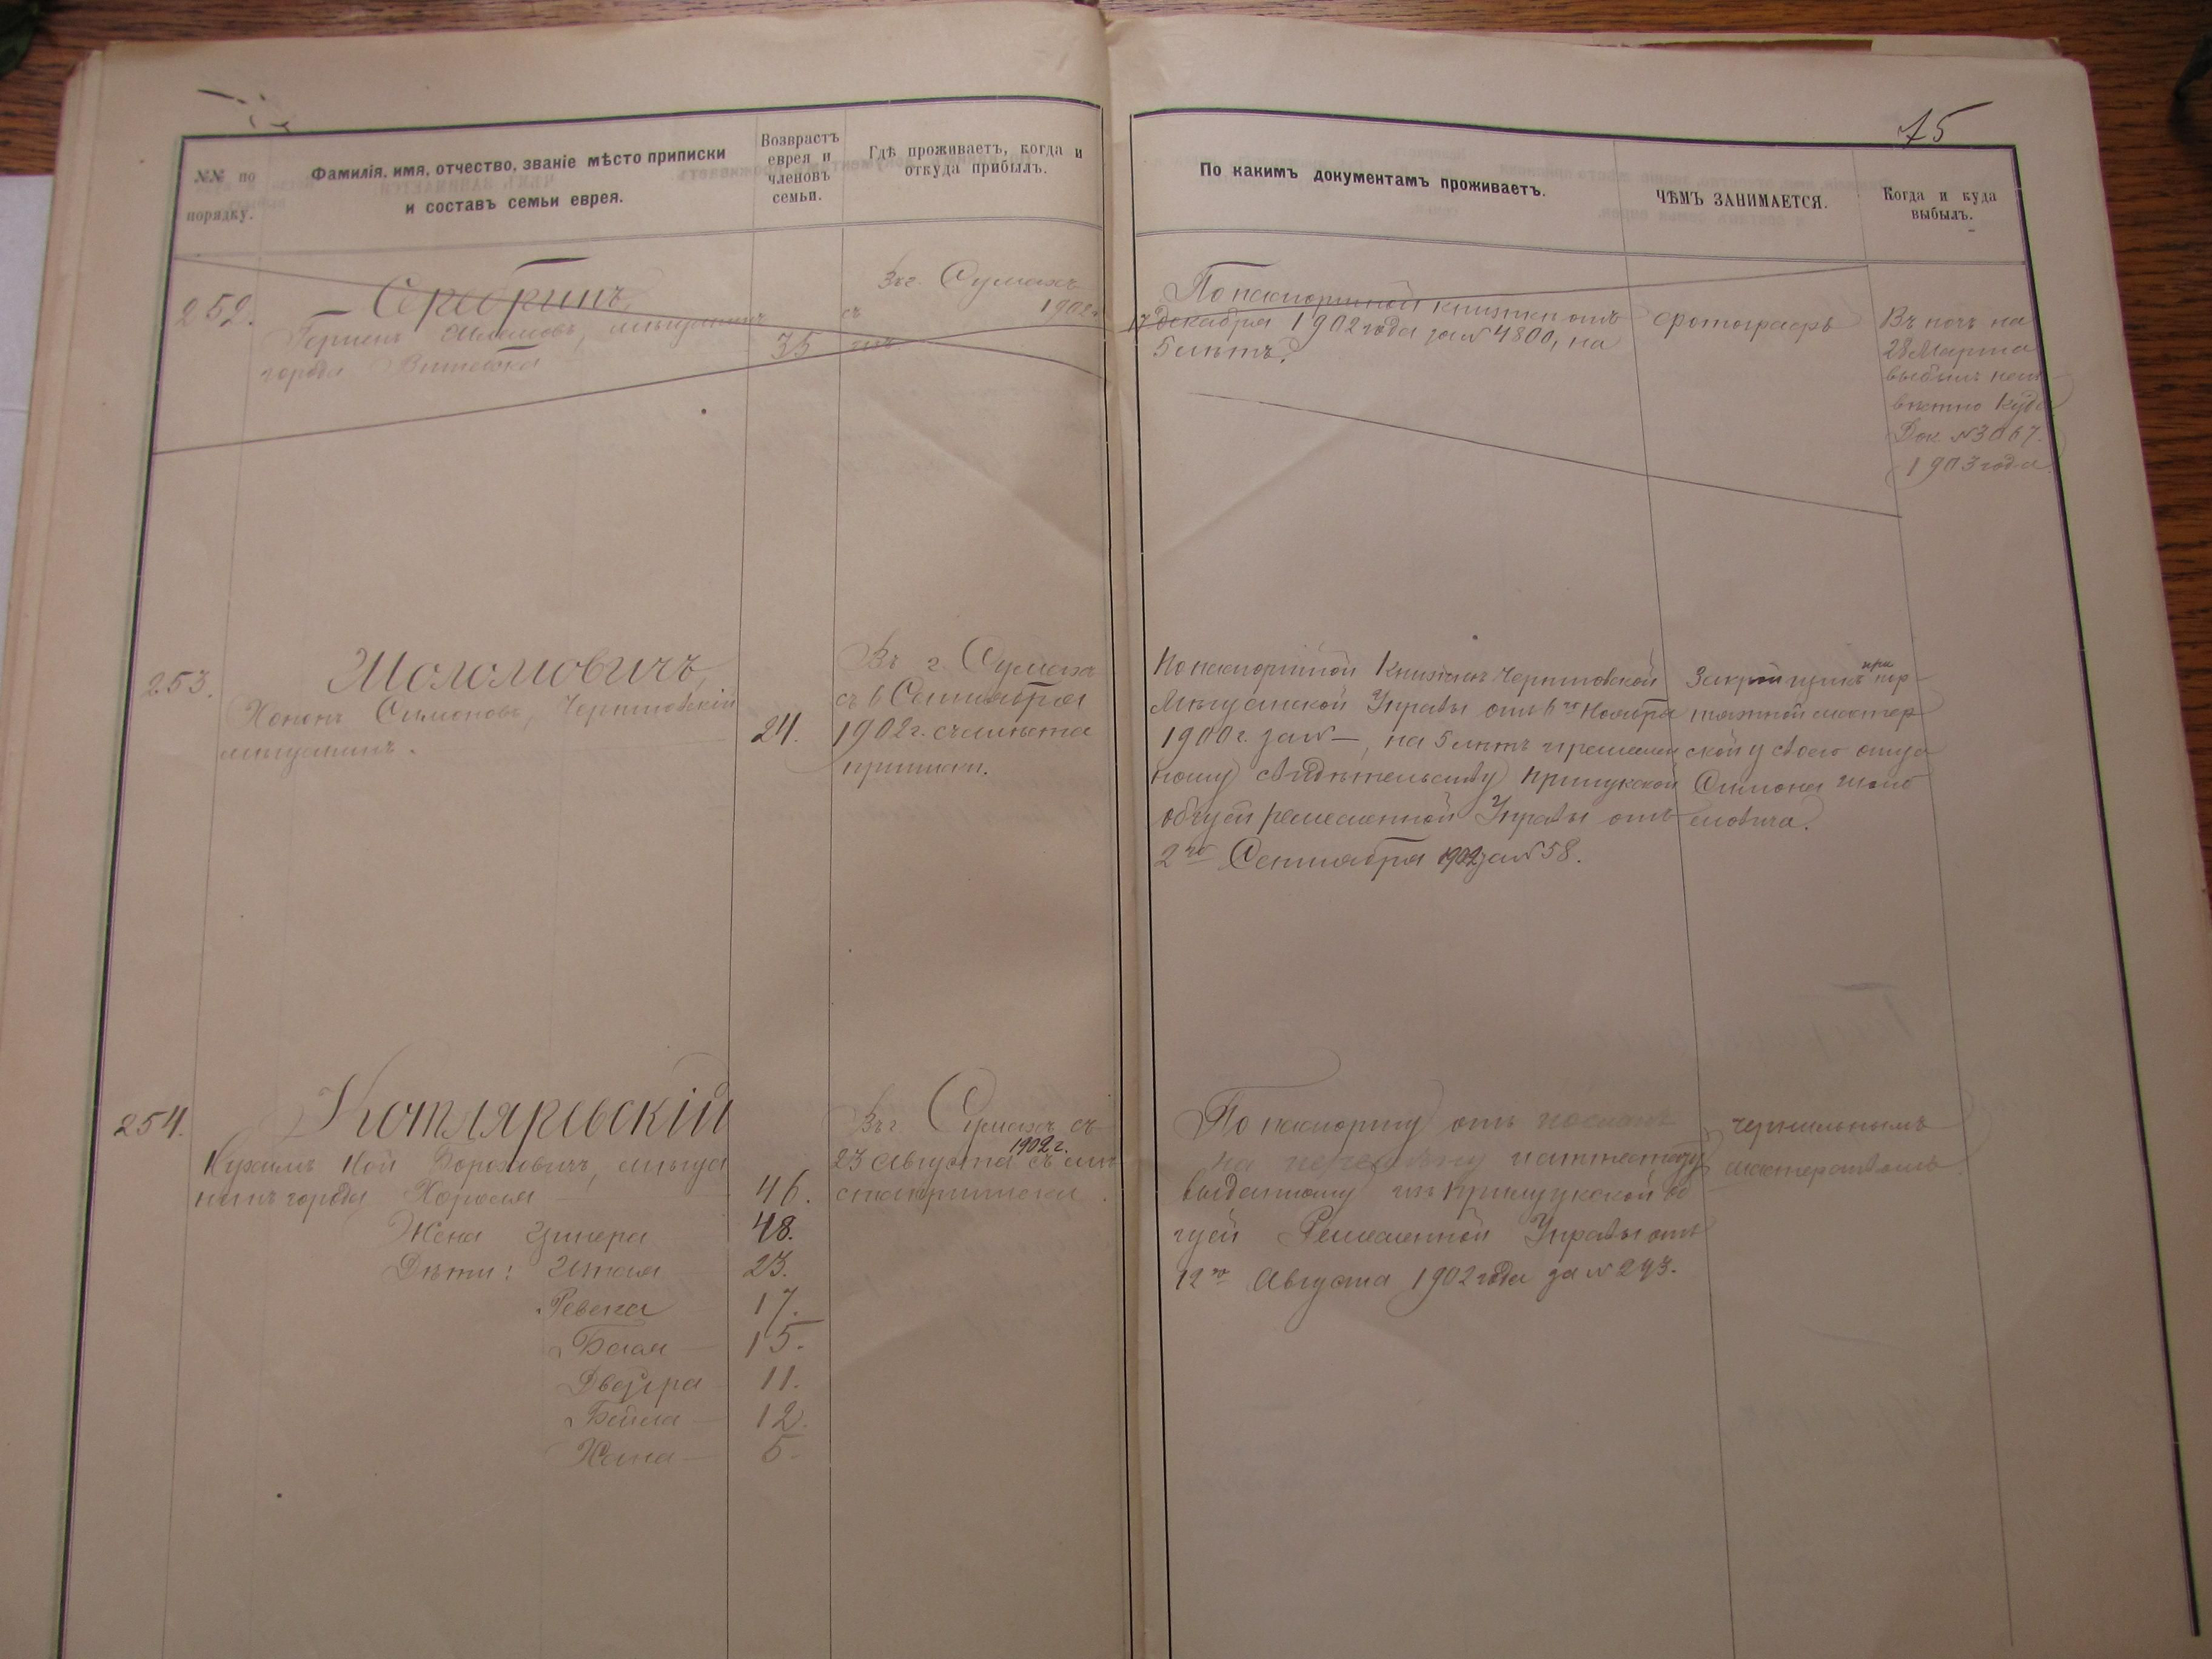 75
№№ по порядку.
Фамилія, имя, отчество, званіе мѣсто приписки
и составъ семьи еврея.
Возврастъ
еврея и
членовъ
семьи.
Гдѣ проживаетъ, когда и
откуда прибылъ.
По какимъ документамъ проживаетъ.
ЧѢМЪ ЗАНИМАЕТСЯ.
Когда и куда
выбылъ.
252.
Серебринъ
Шлемовъ, мѣщанинъ
города Витебска
35
Въ г. Сумахъ
съ 1902 г.
По паспортной книжки отъ
17 декабря 1902 года за № 4800, на
5 лѣтъ.
фотографъ
Въ ночь на
28 Марта
выбылъ неиз
вѣстно куда
Док. №3067.
1903 года
253.
Шоломовичъ
Хононъ Симоновъ, Черниговскій
мѣщанинъ.
24.
Въ г. Сумахъ
съ 6 Сентября
1902 г. съ мѣста
приписки.
По паспортной Книжкѣ Черниговской
Мѣщанской Управы отъ 6го Ноября
1900 г. за № —, на 5 лѣтъ и ремеслен
ному свидѣтельству Прилукской
общей ремесленной Управы отъ
2го Сентября 1902 за № 58.
Закройщикъ при пор
тняжной мастер
ской у своего отца
Симона Шоло
мовича.
254.
Котляревскій
Нухимъ Ной Бороховичъ, мѣща
нинъ города Хорола
46.
Жена Ципера 48.
Дѣти: Итля 23.
Ревека 17.
Бася 15.
Двойра 11.
Бейла 12.
Хана 5.
Въ г. Сумахъ съ
23 Августа 1902 г. съ мѣ
ста приписки.
По паспорту отъ
на и аттестату
выданному изъ Прилукской об
щей Ремесленной Управы отъ
12го Августа 1902 года за № 293.
чернильнымъ
мастерствомъ.